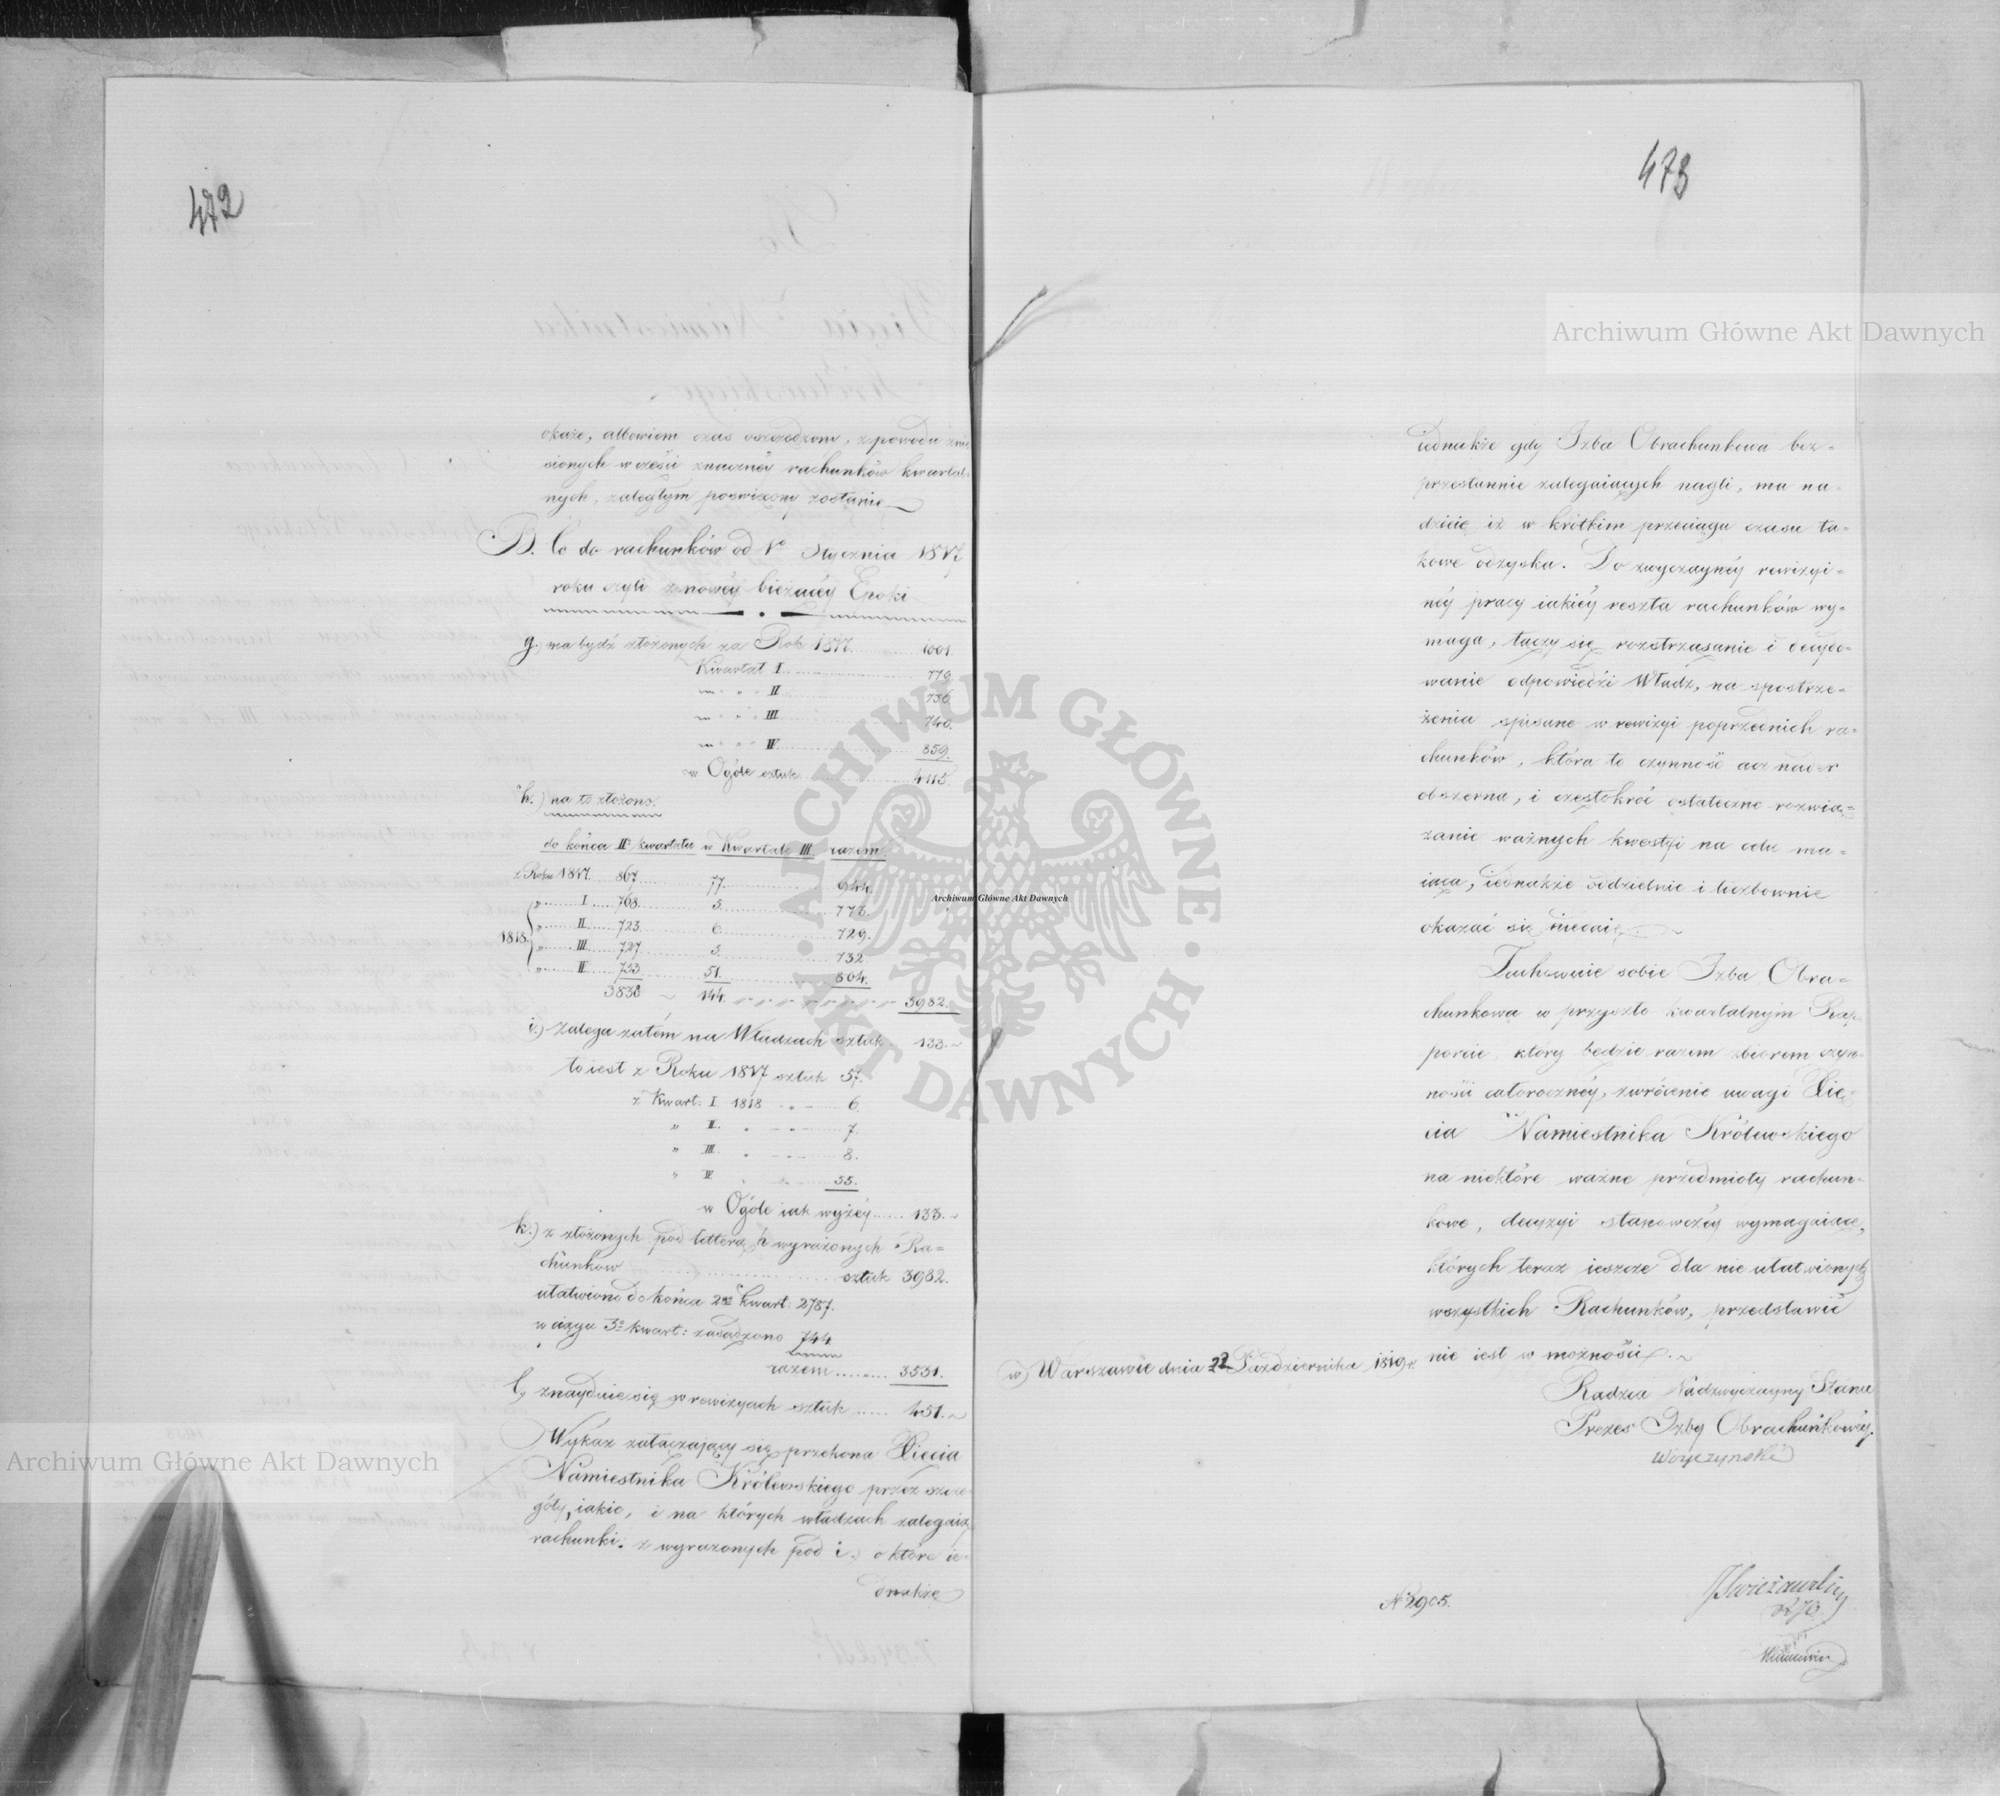 472
okaże, albowiem czas oszczędzony, z powodu znie
sionych w części znacznéy rachunków kwartal-
nych, zaległym poswięcony zostanie
B. Co do rachunków od 1o Stycznia 1817
roku czyli z nowéy bieżącéy Epoki
g.) ma bydź złożonych za Rok 1817 1001.
Kwartał I. 779.
" " II 736.
" " III 740.
" " IV 859.
w Ogóle sztuk 4115.
h.) na to złożono.
do końca IIo kwartału w Kwartale III razem
z Roku 1817. 867. 77. 944.
1818. " I 768. 5. 773.
" II 723. 6. 729.
" III 727. 5. 732.
" IV 753 51. 804.
3838 144. 3982.
i.) zalega zatém na Władzach sztuk 133.
to iest z Roku 1817 sztuk 57.
z Kwart: I 1818 " 6.
" II. " 7.
" III. " 8.
" IV " 55.
w Ogóle iak wyżéy 133.
k.) z złożonych pod litterą h wyrażonych Ra-
chunkow sztuk 3982.
ułatwiono do końca 2go kwart: 2787.
w ciągu 3o kwart: zasądzono 744
razem 3531.
l.) znayduie się w rewizyach sztuk 451.
Wykaz załączaiący się przekona Xięcia
Namiestnika Królewskiego przez szcze-
góły, iakie, i na których władzach zalegaią
rachunki. z wyrażonych pod i.) o które ie-
dnakże
473
iednakże gdy Izba Obrachunkowa bez-
przestannie zalegaiących nagli, ma na-
dzieię iż w krótkim przeciągu czasu ta-
kowe odzyska. Do zwyczaynéy rewizyi-
néy pracy iakiéy reszta rachunków wy-
maga, łączy się rozstrząsanie i decydo-
wanie odpowiedzi Władz, na spostrze-
żenia spisane w rewizyi poprzednich ra-
chunków, która to czynność acz nader
obszerna, i częstokroć ostateczne rozwią-
zanie ważnych kwestyi na celu ma-
iąca, iednakże oddzielnie i liczbownie
okazać się nie daie
Zachowuie sobie Izba Obra-
chunkowa w przyszło kwartalnym Rap-
porcie, który będzie razem zbiorem czyn-
ności całoroczney, zwrócenie uwagi Xię-
cia Namiestnika Królewskiego
na niektóre ważne przedmioty rachun-
kowe, decyzyi stanowczéy wymagaiące,
których teraz ieszcze dla nie ułatwionych
wszystkich Rachunków, przedstawić
nie iest w możności.
w Warszawie dnia 22 Października 1819 r.
Radzca Nadzwyczayny Stanu
Prezes Izby Obrachunkowéy.
Woyczyński
No 2905.
Archiwum Główne Akt Dawnych
Archiwum Główne Akt Dawnych
Archiwum Główne Akt Dawnych
ARCHIWUM GŁÓWNE AKT DAWNYCH